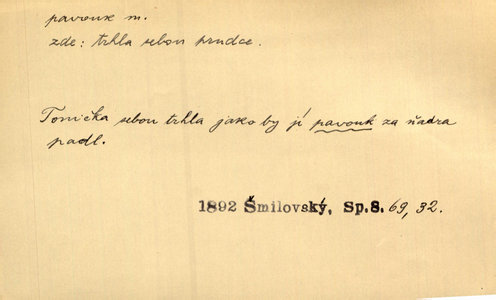 pavouk m.
zde: trhla sebou prudce.
Tonička sebou trhla jako by jí pavouk za ňadra
padl.
1892 Šmilovský, Sp.8. 69, 32.